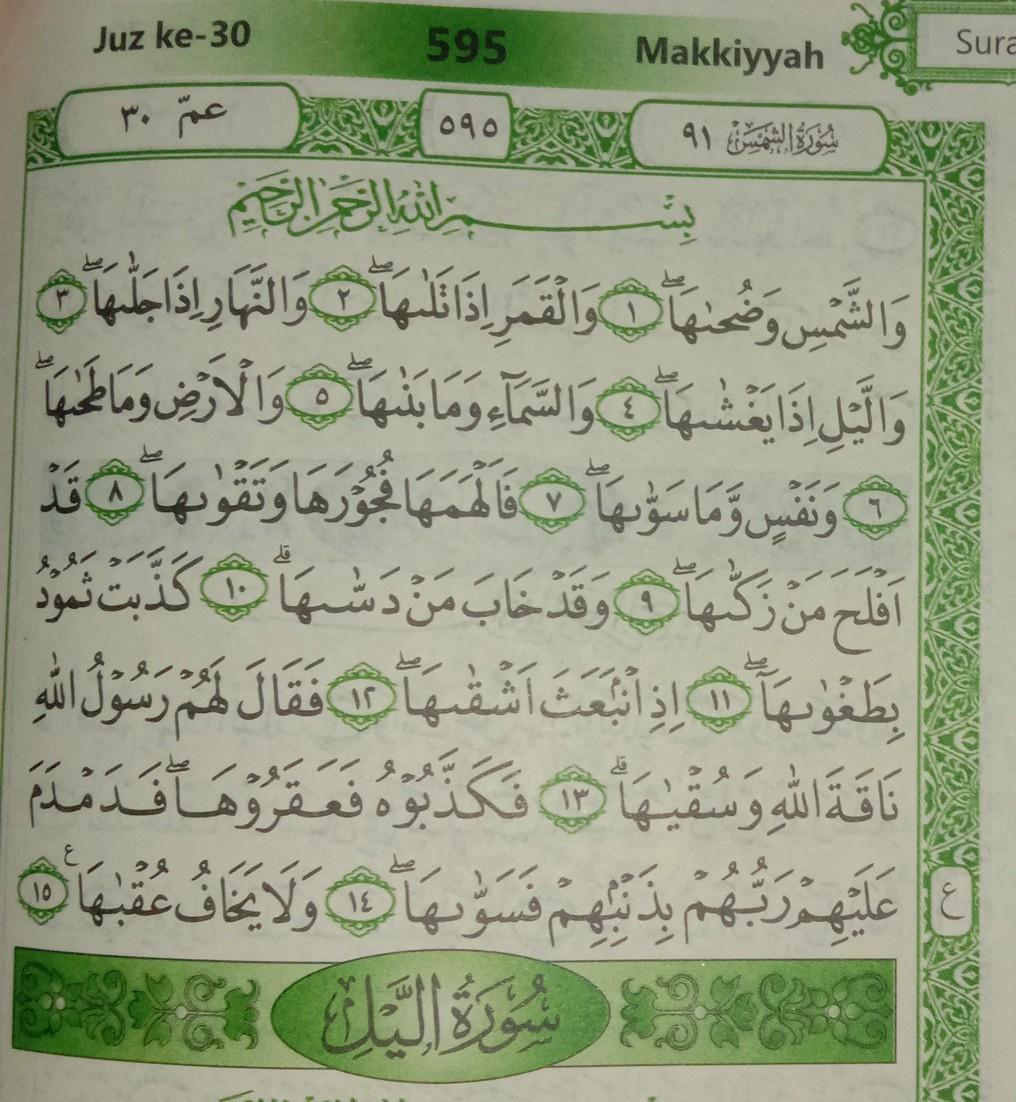 Juz ke-30 595 Makkiyyah
عمّ ٣٠ ٥٩٥ سُورَةُ الشَّمْسِ ٩١
بِسْمِ اللّٰهِ الرَّحْمٰنِ الرَّحِيْمِ
وَالشَّمْسِ وَضُحٰىهَاۖ ١ وَالْقَمَرِ اِذَا تَلٰىهَاۖ ٢ وَالنَّهَارِ اِذَا جَلّٰىهَاۖ ٣
وَالَّيْلِ اِذَا يَغْشٰىهَاۖ ٤ وَالسَّمَاۤءِ وَمَا بَنٰىهَاۖ ٥ وَالْاَرْضِ وَمَا طَحٰىهَاۖ
٦ وَنَفْسٍ وَّمَا سَوّٰىهَاۖ ٧ فَاَلْهَمَهَا فُجُوْرَهَا وَتَقْوٰىهَاۖ ٨ قَدْ
اَفْلَحَ مَنْ زَكّٰىهَاۖ ٩ وَقَدْ خَابَ مَنْ دَسّٰىهَاۗ ١٠ كَذَّبَتْ ثَمُوْدُ
بِطَغْوٰىهَآۖ ١١ اِذِ انْۢبَعَثَ اَشْقٰىهَاۖ ١٢ فَقَالَ لَهُمْ رَسُوْلُ اللّٰهِ
نَاقَةَ اللّٰهِ وَسُقْيٰهَاۗ ١٣ فَكَذَّبُوْهُ فَعَقَرُوْهَاۖ فَدَمْدَمَ
عَلَيْهِمْ رَبُّهُمْ بِذَنْۢبِهِمْ فَسَوّٰىهَاۖ ١٤ وَلَا يَخَافُ عُقْبٰهَا ࣖ ١٥
ع
سُورَةُ الَّيْلِ